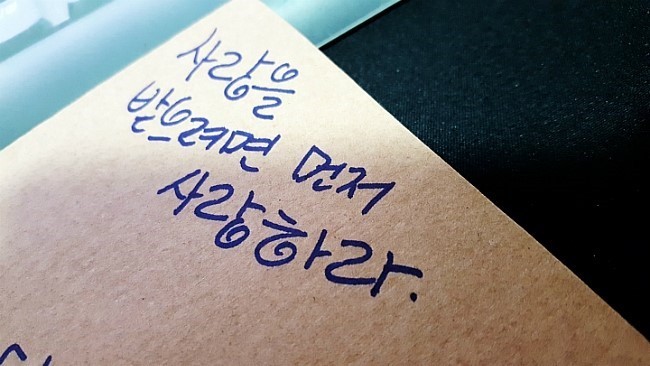 사랑을
받으려면 먼저
사랑하라.